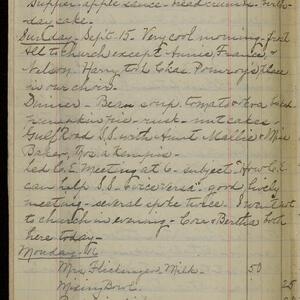 Supper - apple sauce - head crumbs - birth-
day cake.
Sunday - Sept. 15. Very cool morning - first
All to church except Annie, Francis, &
Nelson. Harry took Chas. Pomroy's place
in our choir.
Dinner - Bean soup, tomato &
pie - rusk - nut cakes -
Gulf Road S.S. with Aunt Mallie & Miss
Baker,
led C.E. Meeting at 6 - subject - "How C.E.
can help S.S. & vice versa" good lively
meeting - several spoke twice. I went not
to church in evening - Cora & Bertha both
here today -
Monday 16
Mrs. Flickinger's Milk - 50
Mixing Bowl 25